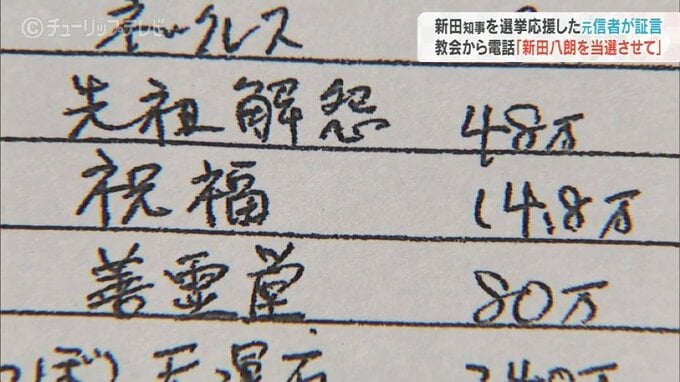 ©チューリップテレビ
新田知事を選挙応援した元信者が証言
教会から電話「新田八朗を当選させて」
ネックレス
先祖解怨 48万
祝福 14.8万
善霊堂 80万
つぼ) 天運石 240万